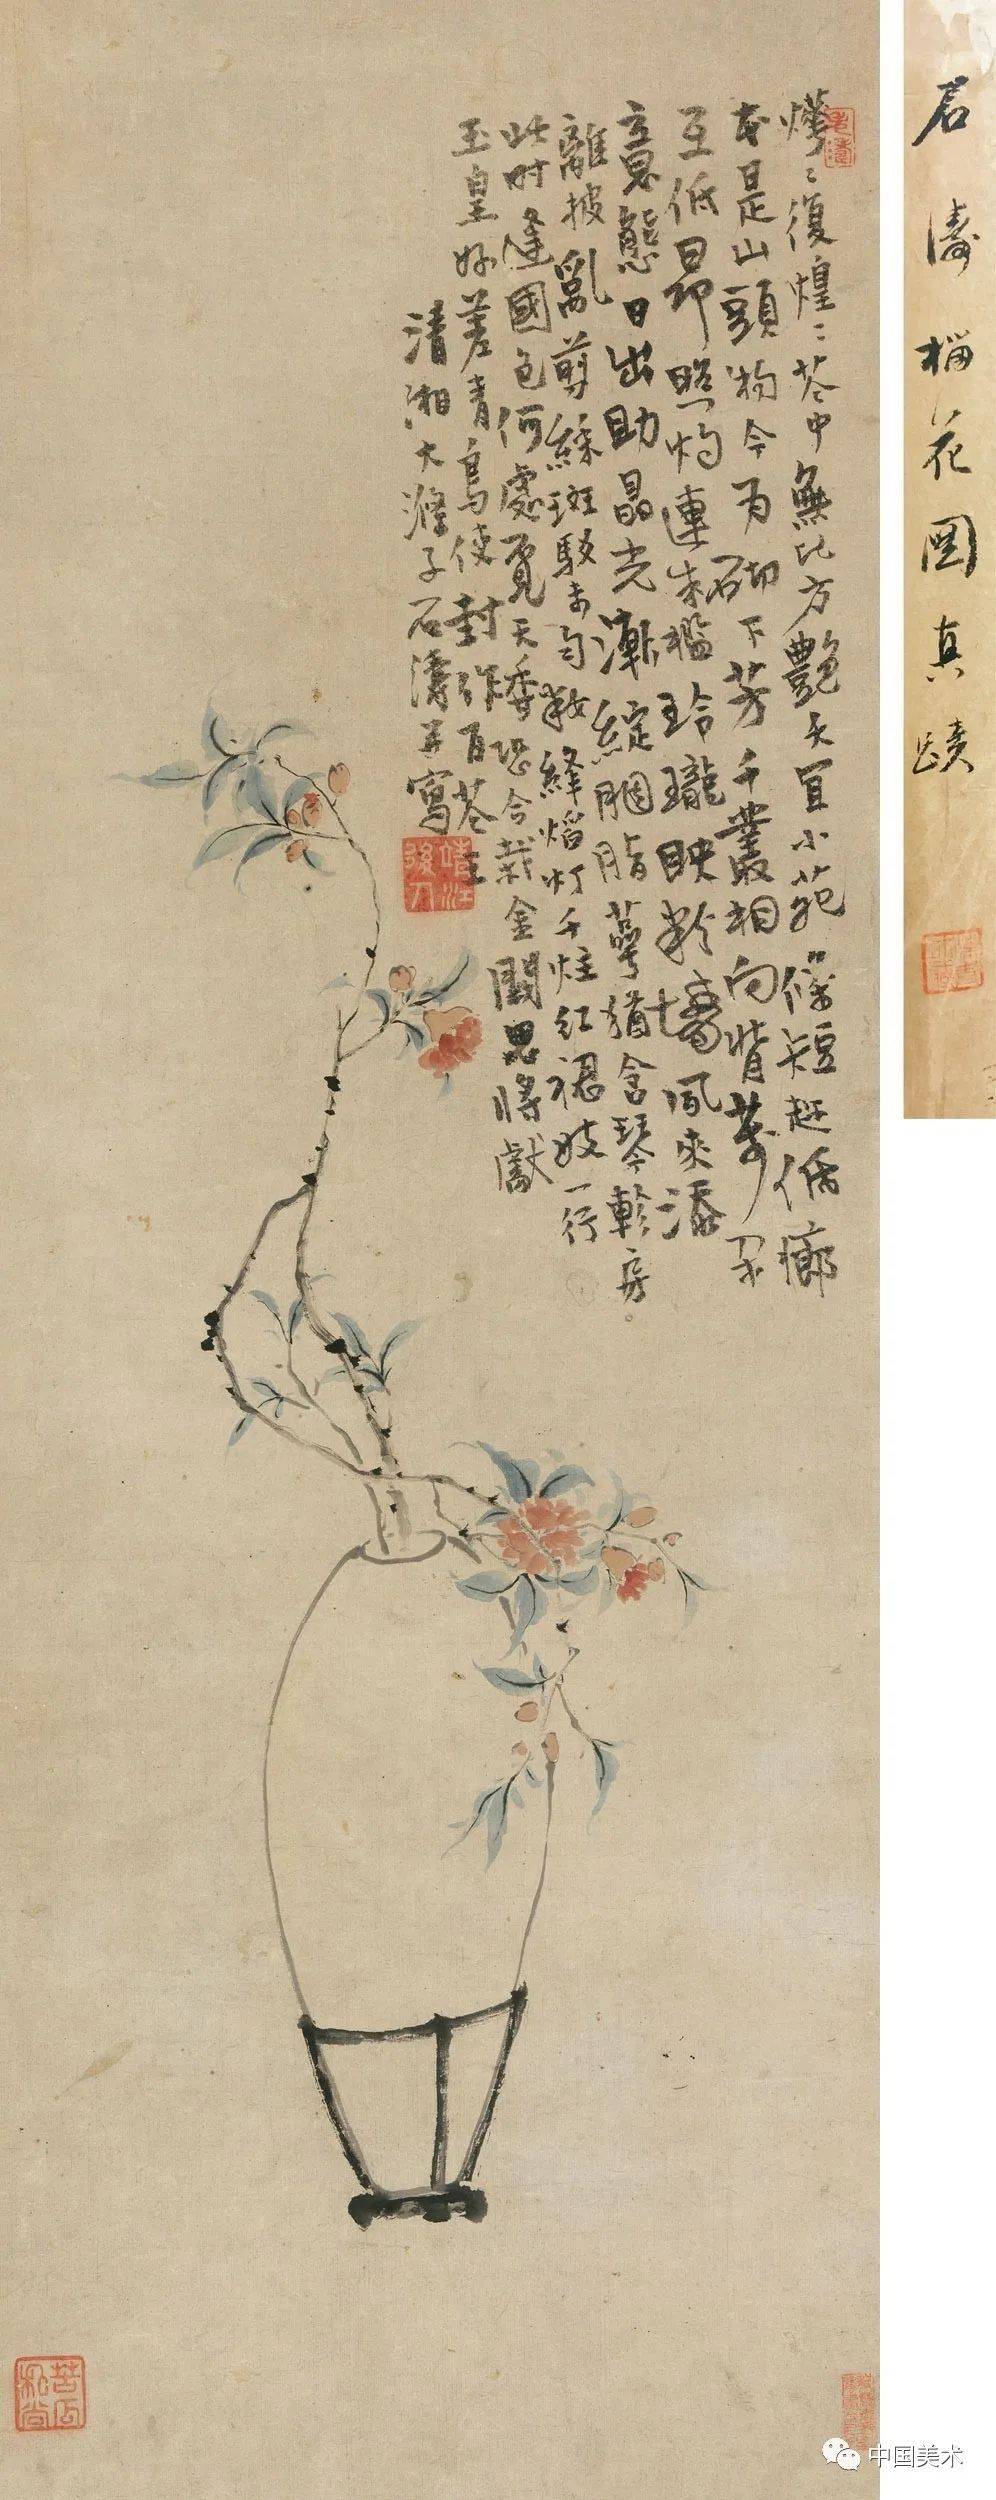 燁〻復煌〻花中無比方艷夭宜小苑條短趁低廊
本是山頭物今為砌下芳千叢相向背萬朵
互低昂照灼連朱檻玲瓏映粉墻風來添
意態日出助晶光漸綻胭脂萼猶含琴軫房
離披亂剪綵斑駁未勻粧絳焰灯千炷紅裙妓一行
此时逢國色何處覓天香恐合栽金闕思將獻
玉皇好差青鳥使封作百花王
清湘大滌子石濤并寫
老濤
靖江後人
苦瓜和尚
石濤榴花圖真蹟
中国美术